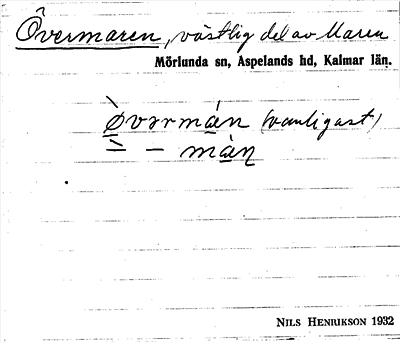 Övermaren, västlig del av Maren
Mörlunda sn, Aspelands hd, Kalmar län.
Øvərmán (vanligast)
— – màn
NILS HENRIKSON 1932